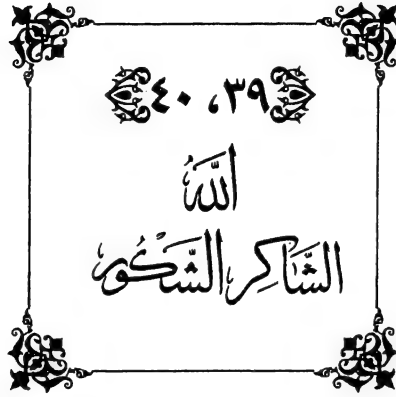 ٣٩، ٤٠
اللهُ
الشَّاكِرُ الشَّكُورُ